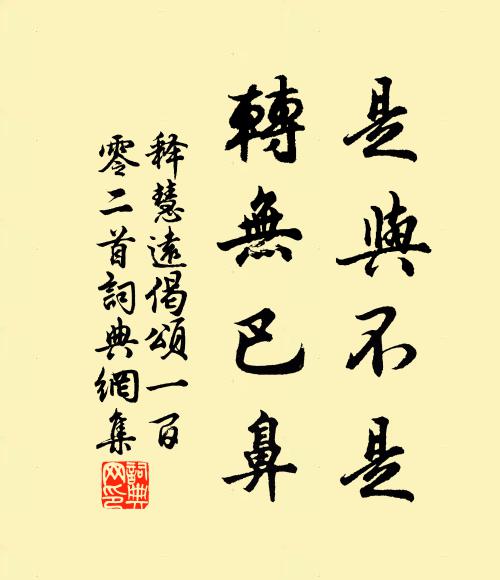 是與不是
轉無巴鼻
釋慧遠偈頌一百
零二首詞典網集
詞典
网印